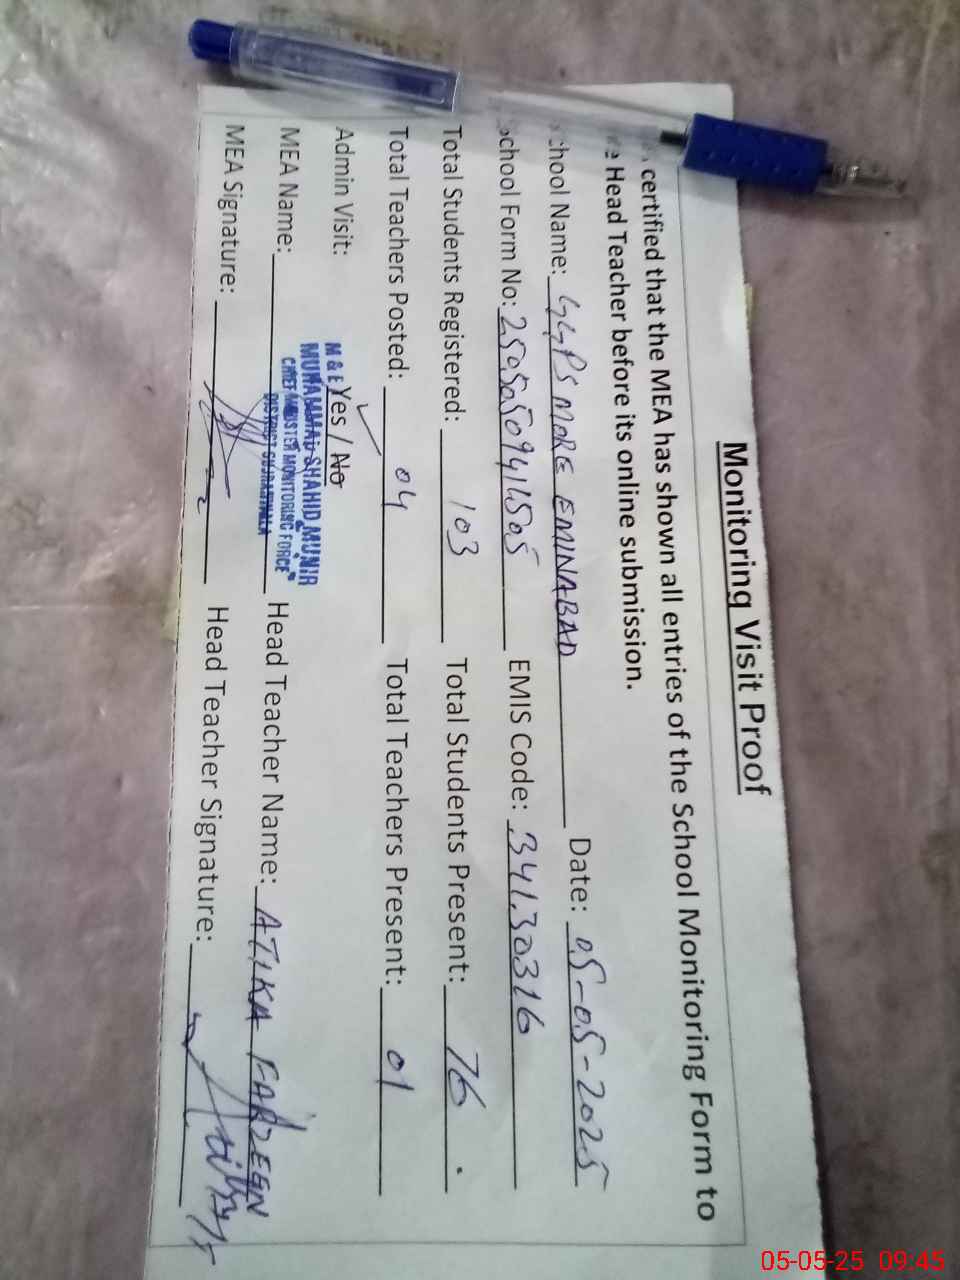 Monitoring Visit Proof
certified that the MEA has shown all entries of the School Monitoring Form to
Head Teacher before its online submission.
chool Name: GGPS MORE EMINABAD Date: 05-05-2025
School Form No: EMIS Code: 34130316
Total Students Registered: 103 Total Students Present: 76
Total Teachers Posted: 04 Total Teachers Present: 01
Admin Visit: Yes / No
M & E
MUHAMMAD SHAHID MUNIR
CHIEF MINISTER MONITORING FORCE
DISTRICT GUJRANWALA
MEA Name: Head Teacher Name: ATIKA FARZEEN
MEA Signature: Head Teacher Signature:
05-05-25 09:45